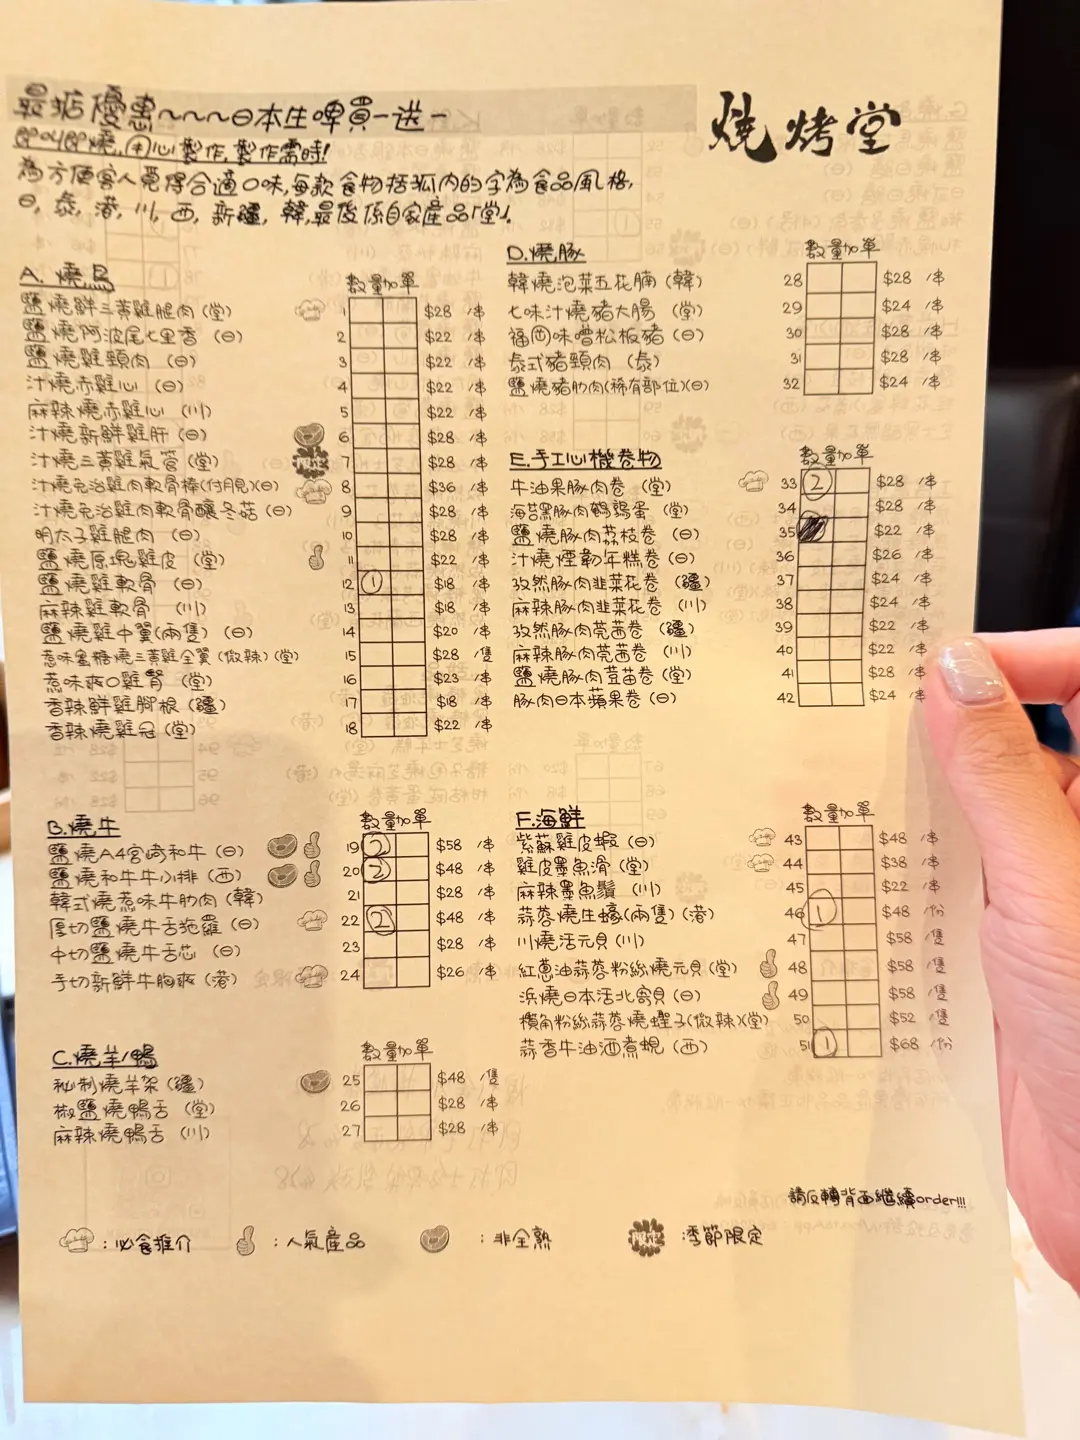 最掂優惠~~~日本生啤買一送一
燒烤堂
即叫即燒,用心製作,製作需時!
為方便客人覓得合適口味,每款食物括弧內的字為食品風格,
日, 泰, 港, 川, 西, 新疆, 韓,最後係自家產品「堂」.
A. 燒鳥 數量加單
鹽燒鮮三黃雞腿肉(堂) 1 $28 /串
鹽燒阿波尾七里香 (日) 2 $22 /串
鹽燒雞頸肉 (日) 3 $22 /串
汁燒赤雞心 (日) 4 $22 /串
麻辣燒赤雞心 (川) 5 $22 /串
汁燒新鮮雞肝 (日) 6 $28 /串
汁燒三黃雞氣管 (堂) 限定 7 $28 /串
汁燒免治雞肉軟骨棒(付月見)(日) 8 $36 /串
汁燒免治雞肉軟骨釀冬菇 (日) 9 $28 /串
明太子雞腿肉 (日) 10 $28 /串
鹽燒原塊雞皮 (堂) 11 $22 /串
鹽燒雞軟骨 (日) 12 1 $18 /串
麻辣雞軟骨 (川) 13 $18 /串
鹽燒雞中翼(兩隻) (日) 14 $20 /串
惹味蜜糖燒三黃雞全翼 (微辣) (堂) 15 $28 /隻
惹味爽口雞腎 (堂) 16 $23 /串
香辣鮮雞腳根 (疆) 17 $18 /串
香辣燒雞冠 (堂) 18 $22 /串
B. 燒牛 數量加單
鹽燒A4宮崎和牛 (日) 19 2 $58 /串
鹽燒和牛牛小排 (西) 20 2 $48 /串
韓式燒惹味牛肋肉 (韓) 21 $28 /串
厚切鹽燒牛舌拖羅 (日) 22 2 $48 /串
中切鹽燒牛舌芯 (日) 23 $28 /串
手切新鮮牛胸爽 (港) 24 $26 /串
C. 燒羊/鴨 數量加單
秘制燒羊架 (疆) 25 $48 /隻
椒鹽燒鴨舌 (堂) 26 $28 /串
麻辣燒鴨舌 (川) 27 $28 /串
D. 燒豚 數量加單
韓燒泡菜五花腩 (韓) 28 $28 /串
七味汁燒豬大腸 (堂) 29 $24 /串
福岡味噌松板豬 (日) 30 $28 /串
泰式豬頸肉 (泰) 31 $28 /串
鹽燒豬肋肉(稀有部位)(日) 32 $24 /串
E. 手工心機卷物 數量加單
牛油果豚肉卷 (堂) 33 2 $28 /串
海苔黑豚肉鵪鶉蛋 (堂) 34 $28 /串
鹽燒豚肉荔枝卷 (日) 35 $22 /串
汁燒煙韌年糕卷 (日) 36 $26 /串
孜然豚肉韭菜花卷 (疆) 37 $24 /串
麻辣豚肉韭菜花卷 (川) 38 $24 /串
孜然豚肉莞茜卷 (疆) 39 $22 /串
麻辣豚肉莞茜卷 (川) 40 $22 /串
鹽燒豚肉荳苗卷 (堂) 41 $28 /串
豚肉日本蘋果卷 (日) 42 $24 /串
F. 海鮮 數量加單
紫蘇雞皮蝦 (日) 43 $48 /串
雞皮墨魚滑 (堂) 44 $38 /串
麻辣墨魚鬚 (川) 45 $22 /串
蒜蓉燒生蠔(兩隻) (港) 46 1 $48 /份
川燒活元貝 (川) 47 $58 /隻
紅蔥油蒜蓉粉絲燒元貝 (堂) 48 $58 /隻
浜燒日本活北寄貝 (日) 49 $58 /隻
欖角粉絲蒜蓉燒蟶子(微辣)(堂) 50 $52 /隻
蒜香牛油酒煮蜆 (西) 51 1 $68 /份
請反轉背面繼續order!!!
: 必食推介 : 人氣產品 : 非全熟 限定 : 季節限定